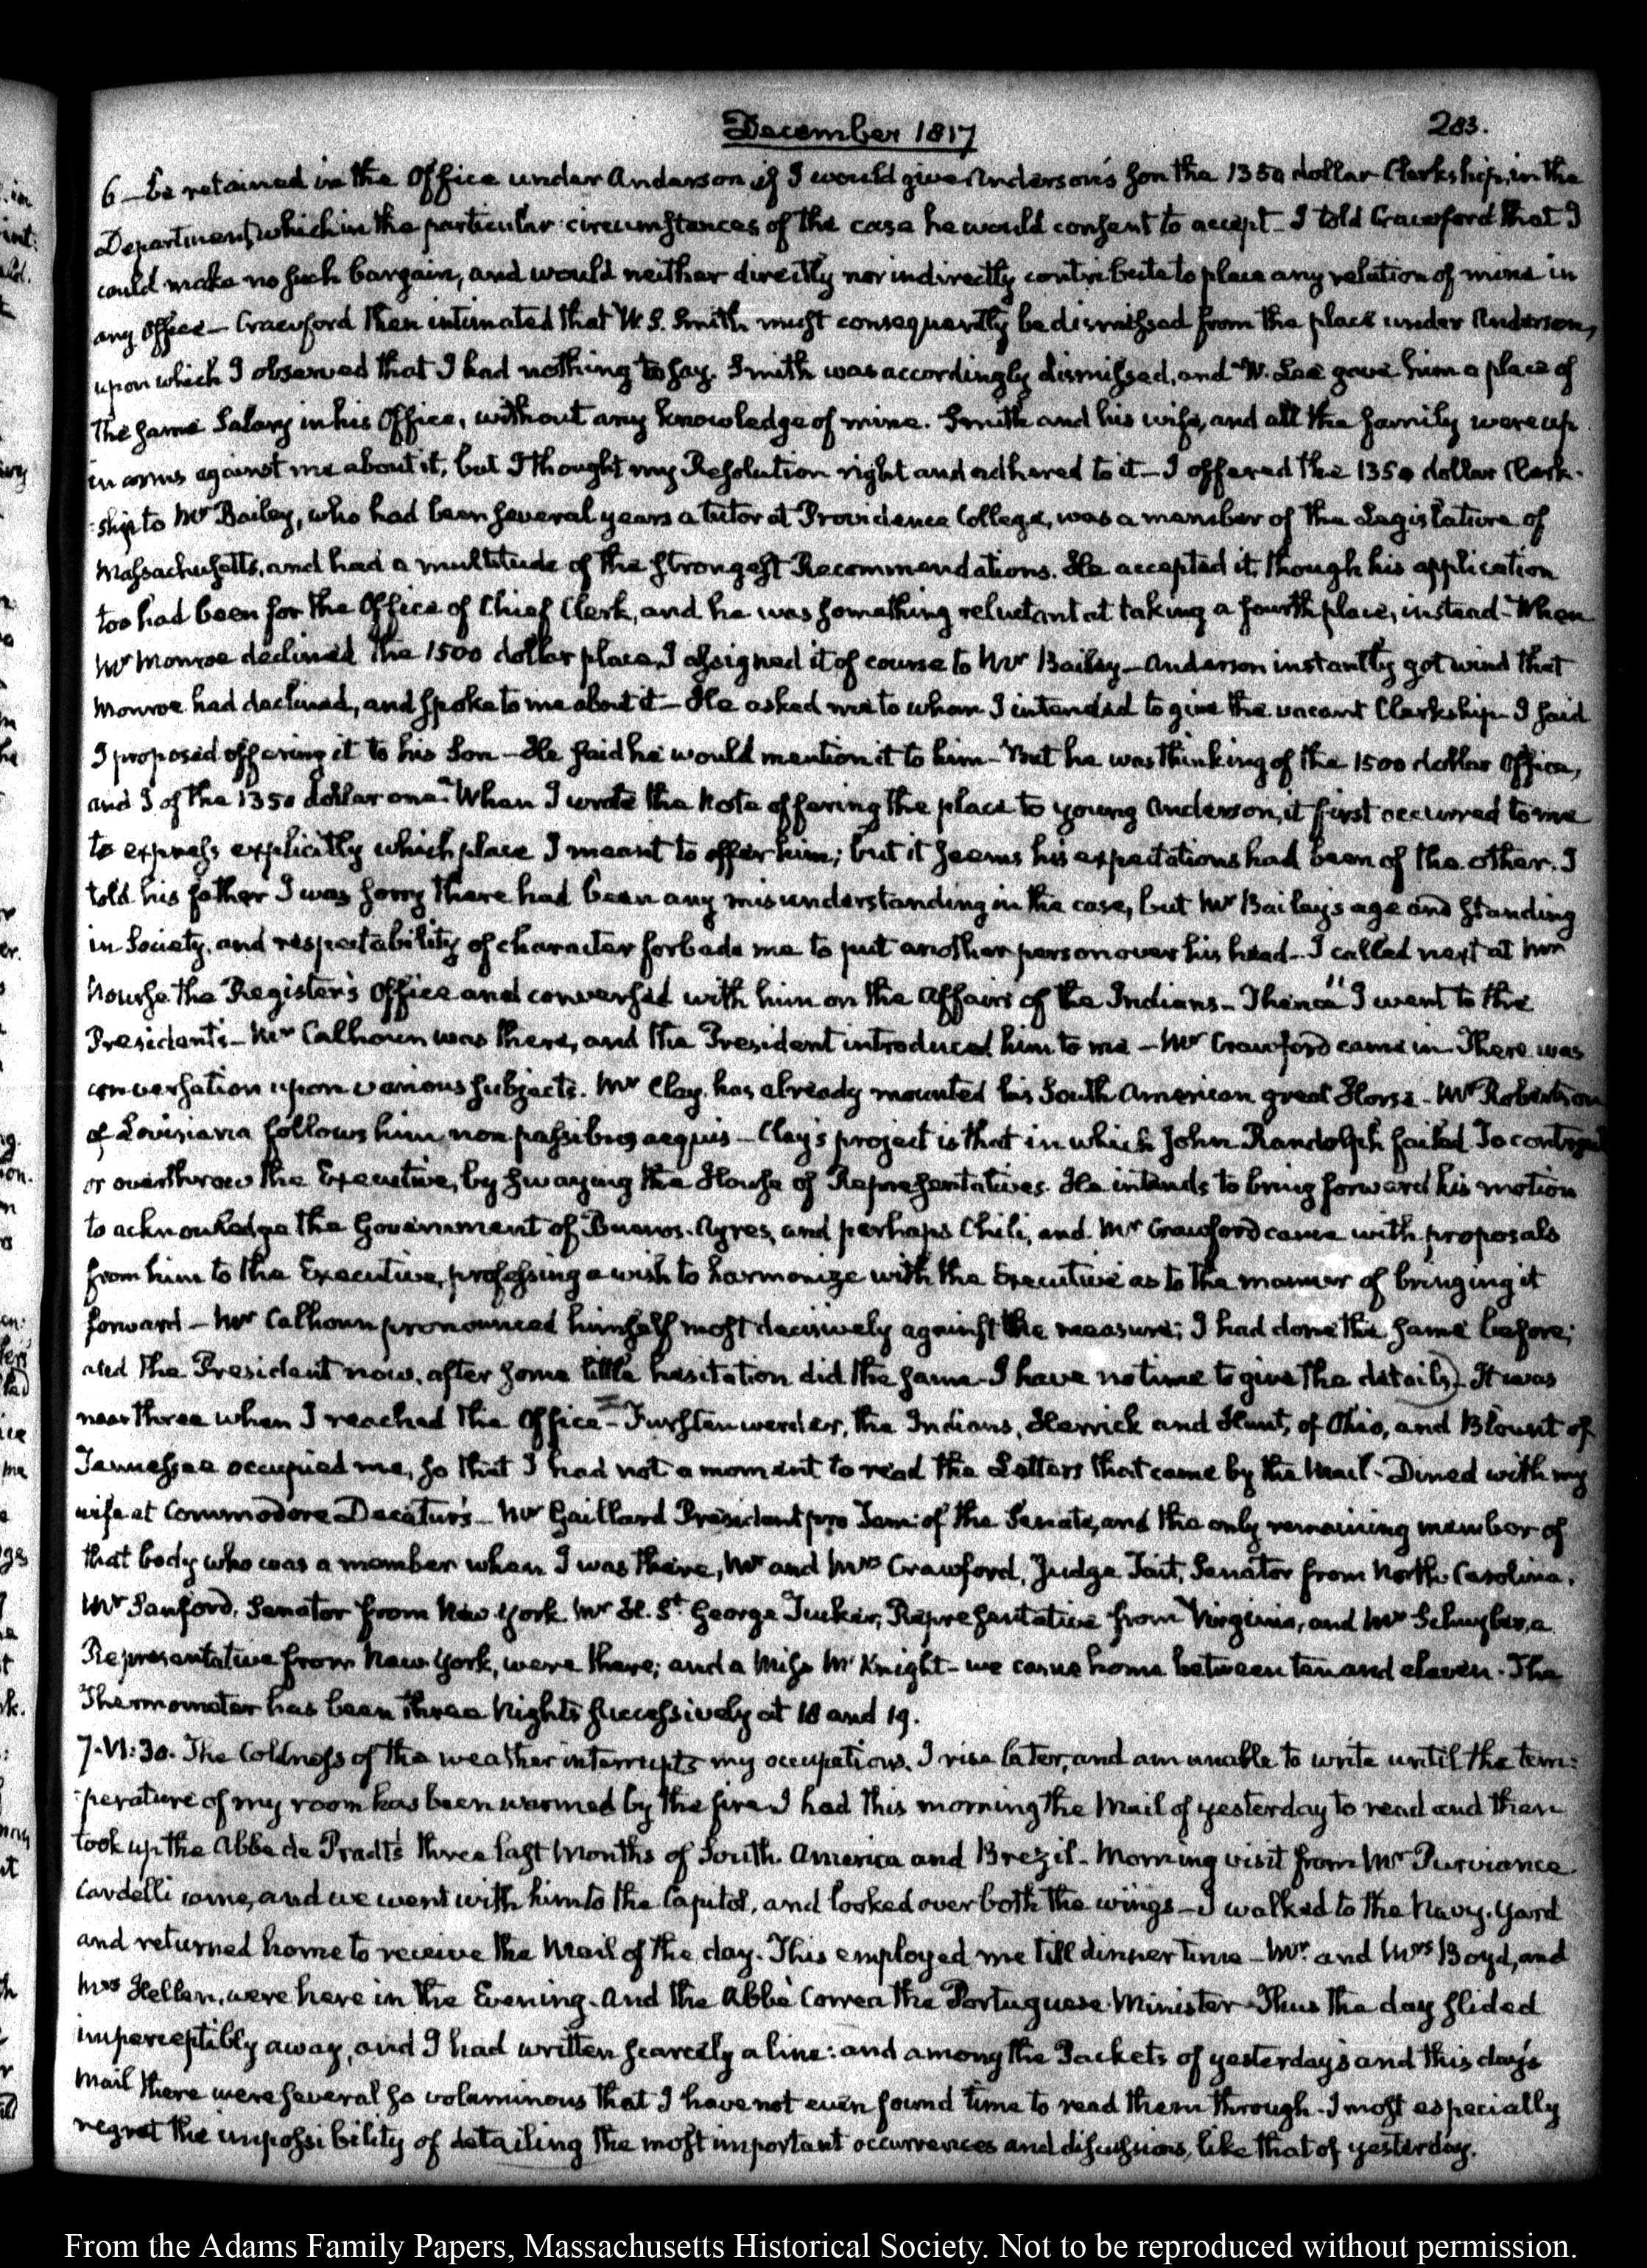 December 1817
283.
6 – be retained in the Office under Anderson if I would give Anderson's son the 1350 dollar Clerkship, in the
Department, which in the particular circumstances of the case he would consent to accept – I told Crawford that I
could make no such bargain, and would neither directly nor indirectly contribute to place any relation of mine in
any Office – Crawford then intimated that W. S. Smith must consequently be dismissed from the place under Anderson,
upon which I observed that I had nothing to say. Smith was accordingly dismissed, and W. Lee gave him a place of
the same Salary in his Office, without any knowledge of mine. Smith and his wife, and all the family were up
in arms against me about it, but I thought my Resolution right and adhered to it – I offered the 1350 dollar Clerk-
-ship to Mr Bailey, who had been several years a tutor at Providence College, was a member of the Legislature of
Massachusetts, and had a multitude of the strongest Recommendations. He accepted it, though his application
too had been for the Office of Chief Clerk, and he was something reluctant at taking a fourth place, instead – When
Mr Monroe declined the 1500 dollar place, I assigned it of course to Mr Bailey – Anderson instantly got wind that
Monroe had declined, and spoke to me about it – He asked me to whom I intended to give the vacant Clerkship – I said
I proposed offering it to his Son – He said he would mention it to him – But he was thinking of the 1500 dollar Office,
and I of the 1350 dollar one. When I wrote the Note offering the place to young Anderson, it first occurred to me
to express explicitly which place I meant to offer him; but it seems his expectations had been of the other. I
told his father I was sorry there had been any misunderstanding in the case, but Mr Bailey's age and standing
in Society, and respectability of character forbade me to put another person over his head – I called next at Mr
Nourse the Register's Office and conversed with him on the affairs of the Indians – Thence I went to the
President's – Mr Calhoun was there, and the President introduced him to me – Mr Crawford came in – There was
conversation upon various subjects. Mr Clay has already mounted his South American great Horse – Mr Robertson
of Louisiana follows him non passibus aequis – Clay's project is that in which John Randolph failed To control
or overthrow the Executive, by swaying the House of Representatives. He intends to bring forward his motion
to acknowledge the Government of Buenos-Ayres, and perhaps Chili, and Mr Crawford came with proposals
from him to the Executive, professing a wish to harmonize with the Executive as to the manner of bringing it
forward – Mr Calhoun pronounced himself most decisively against the measure; I had done the same before;
and the President now, after some little hesitation did the same – I have no time to give the details) – It was
near three when I reached the Office – Furstenwerder, the Indians, Herrick and Hunt, of Ohio, and Blount of
Tennessee occupied me, so that I had not a moment to read the Letters that came by the Mail – Dined with my
wife at Commodore Decatur's – Mr Gaillard President pro Tem: of the Senate, and the only remaining member of
that body who was a member when I was there, Mr and Mrs Crawford, Judge Tait, Senator from North Carolina,
Mr Sanford, Senator from New York Mr H. St George Tucker, Representative from Virginia, and Mr Schuyler, a
Representative from New York, were there; and a Miss McKnight – we came home between ten and eleven. The
Thermometer has been three Nights successively at 18 and 19.
7. VI:30. The Coldness of the weather interrupts my occupations. I rise later, and am unable to write until the tem:
-perature of my room has been warmed by the fire – I had this morning the Mail of yesterday to read and then
took up the Abbé de Pradt's three last Months of South America and Brezil – Morning visit from Mr Purviance
Cardelli came, and we went with him to the Capitol, and looked over both the wings – I walked to the Navy-Yard
and returned home to receive the Mail of the day. This employed me till dinner time – Mr and Mrs Boyd, and
Mrs Hellen, were here in the Evening. And the Abbé Correa the Portuguese Minister – Thus the day slided
imperceptibly away, and I had written scarcely a line: and among the Packets of yesterday's and this day's
Mail there were several so voluminous that I have not even found time to read them through – I most especially
regret the impossibility of detailing the most important occurrences and discussions, like that of yesterday.
From the Adams Family Papers, Massachusetts Historical Society. Not to be reproduced without permission.